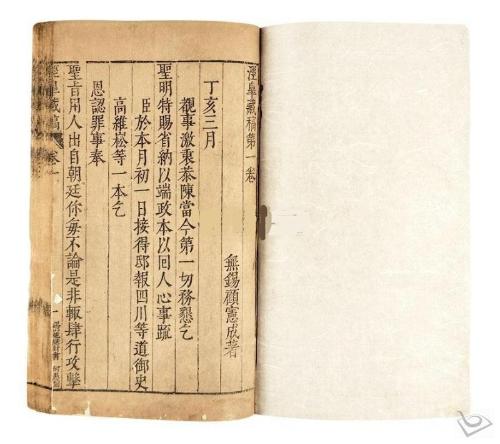 涇皋藏稿第一卷
無錫顧憲成著
丁亥三月
覩事激衷恭陳當今第一切務懇乞
聖明特賜省納以端政本以回人心事疏
臣於本月初一日接得邸報四川等道御史
高維崧等一本乞
恩認罪事奉
聖旨用人出自朝廷你每不論是非輒肆行攻擊
涇皋藏稿
卷一
一